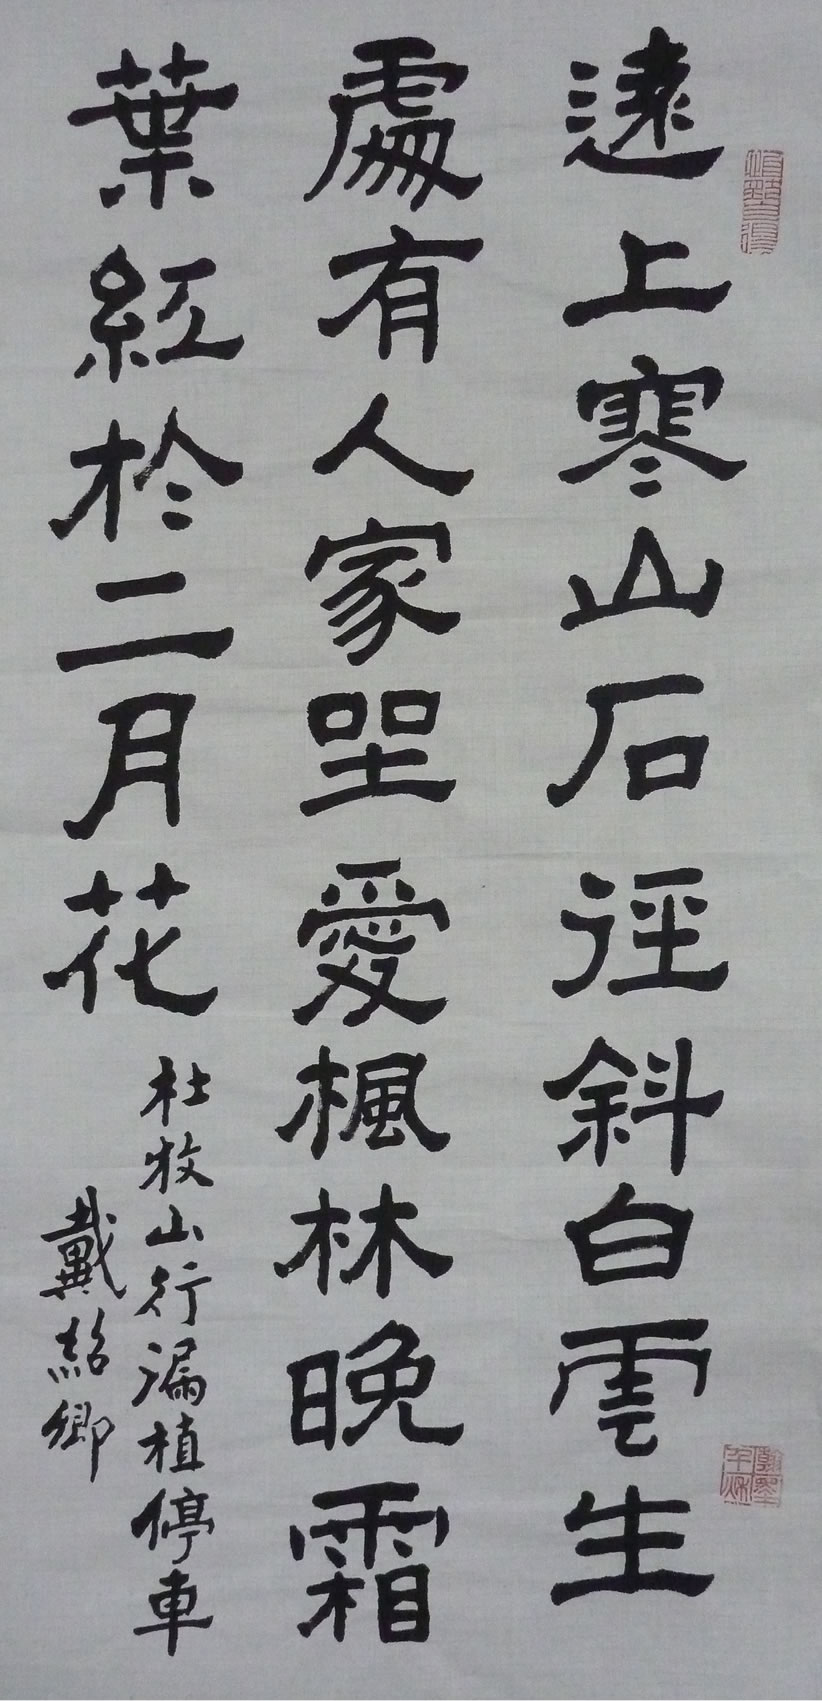 遠上寒山石徑斜白雲生
處有人家坐愛楓林晚霜
葉紅於二月花
杜牧山行漏植停車
戴紹卿
翰墨千秋